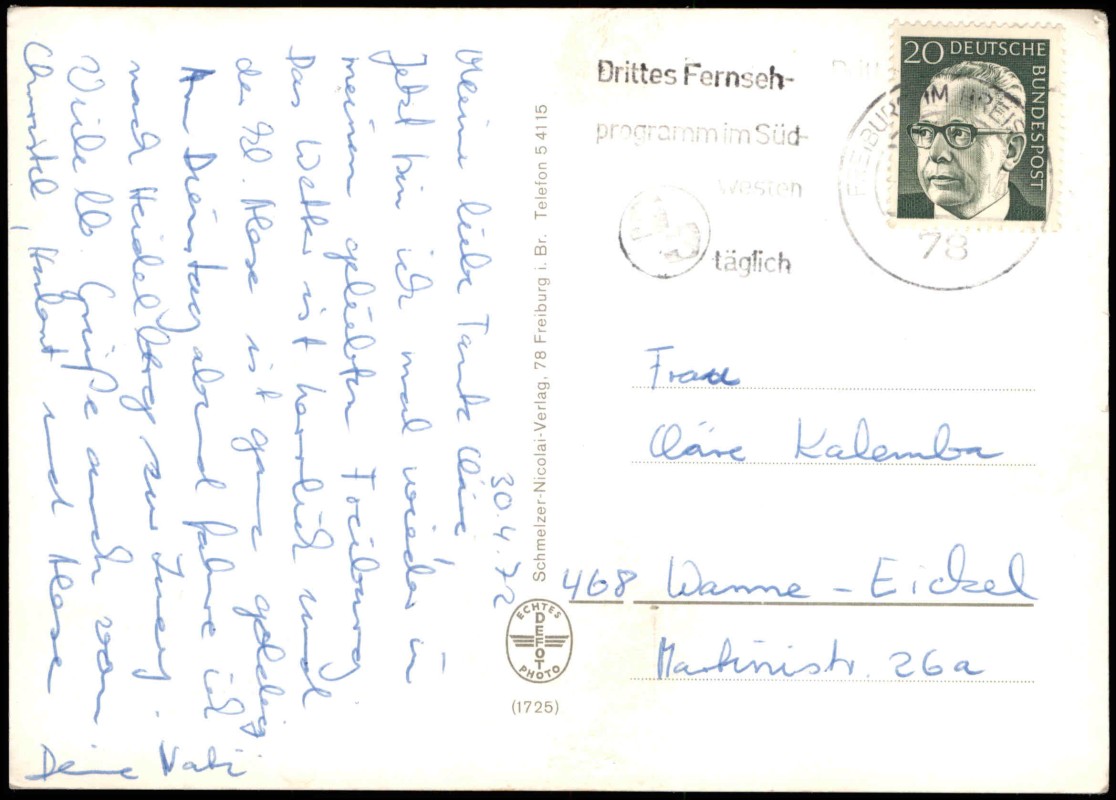 30.4.72
Meine liebe Tante Cläre
Jetzt bin ich mal wieder in
meinem geliebten Freiburg
Das Wetter ist herrlich und
der kl. Hase ist ganz goldig
Am Dienstag abend fahre ich
nach Heidelberg zu
Viele lb. Grüße auch von
Christel, und Hase
Deine Kati
Schmelzer-Nicolai-Verlag, 78 Freiburg i. Br. Telefon 5 4115
ECHTES
DEFOT
PHOTO
(1725)
Drittes Fernseh-
programm im Süd-
westen
täglich
FREIBURG IM BREIS
78
20 DEUTSCHE
BUNDESPOST
Frau
Cläre Kalemba
468 Wanne-Eickel
Martinistr. 26a